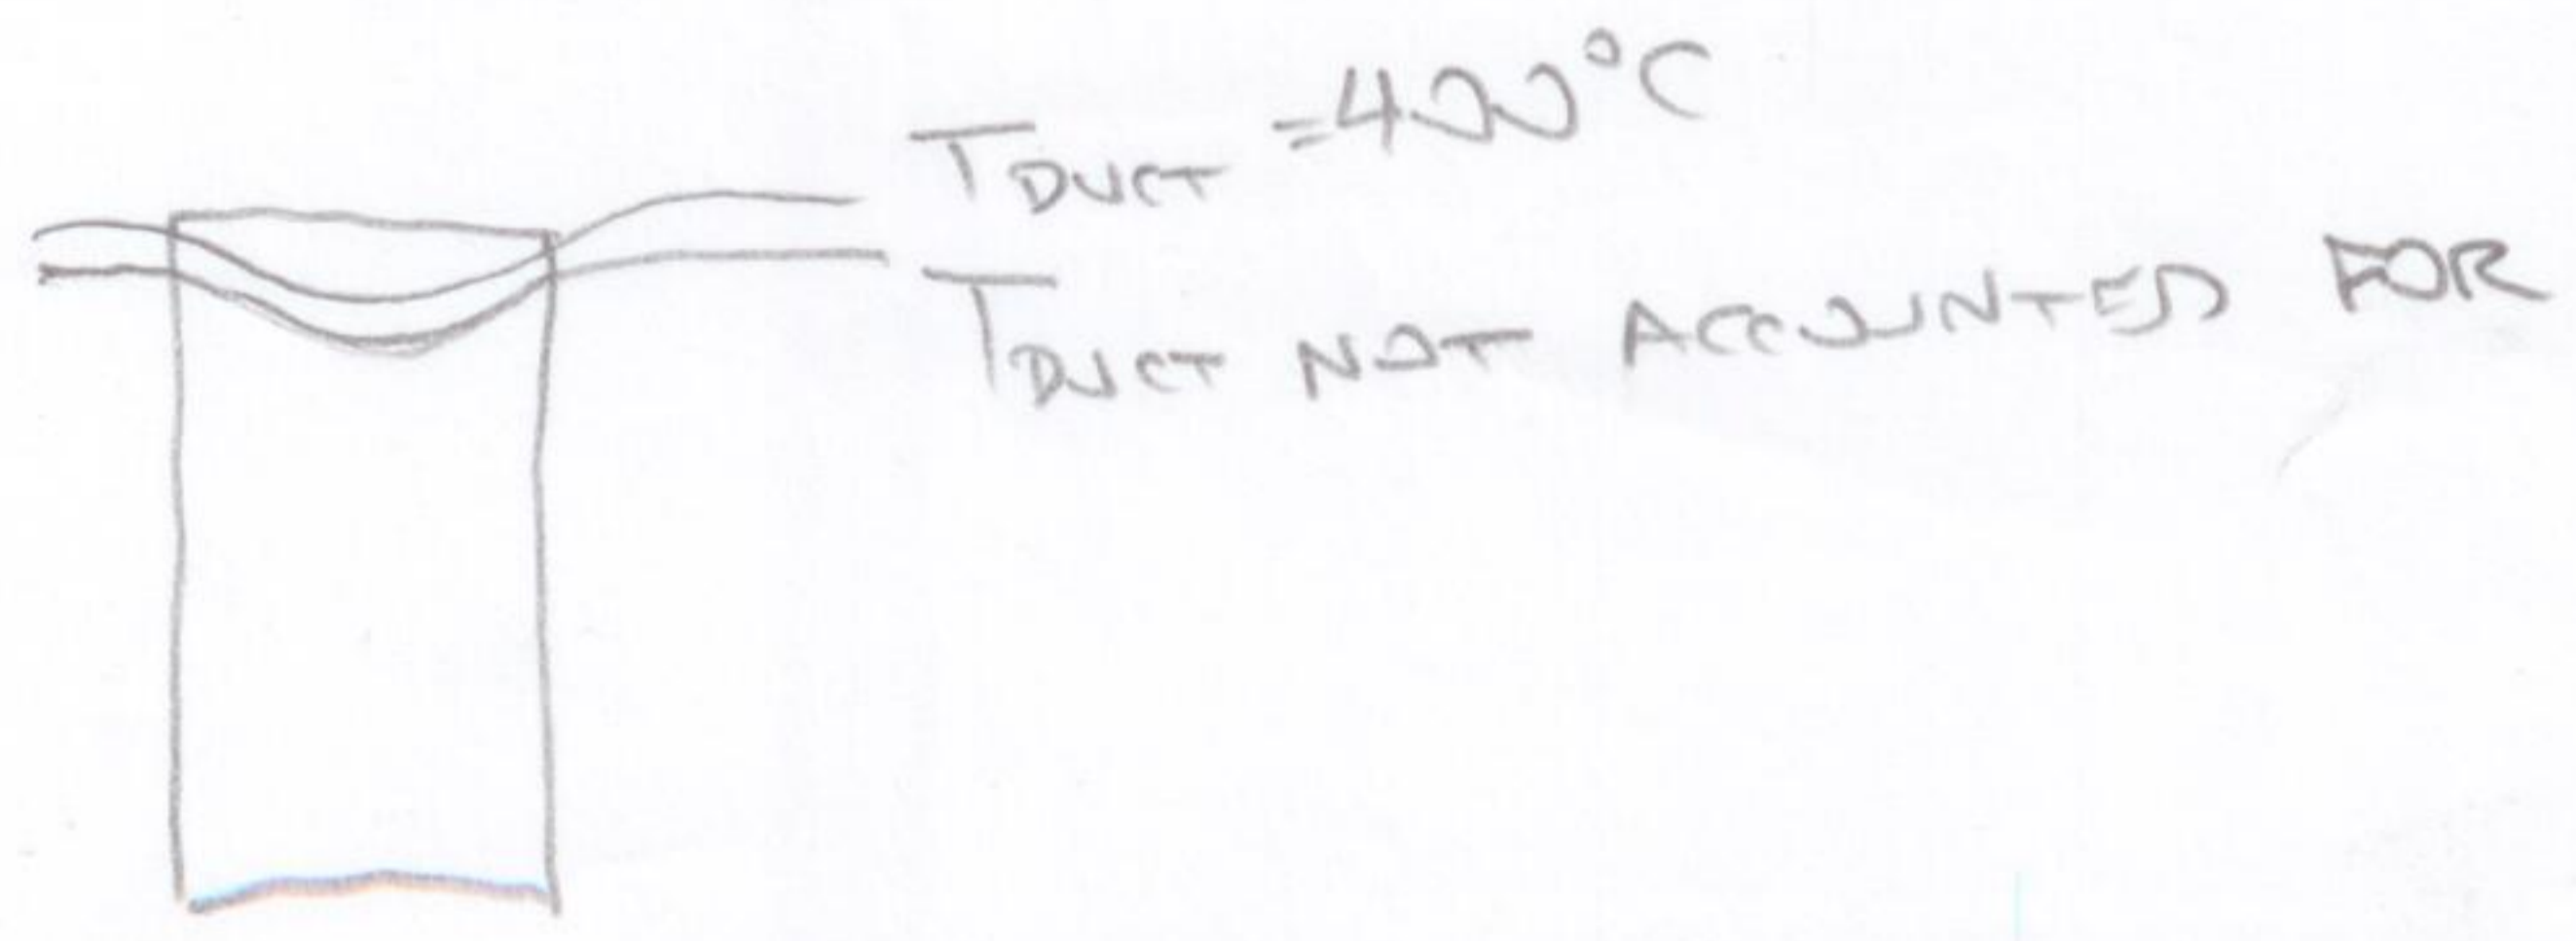 TDUCT =400°C
TDUCT NOT ACCOUNTED FOR